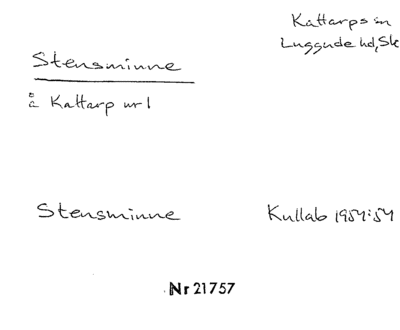 Kattarps sn
Luggude hd, Sk
Stensminne
å Kattarp nr 1
Stensminne
Kullab 1954:54
Nr 21757